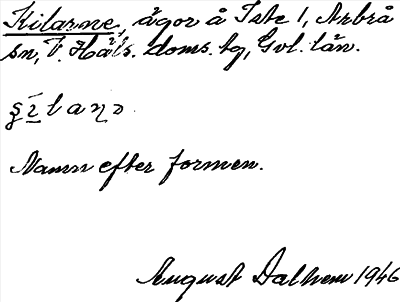 Kilarne, ägor å Iste 1, Arbrå
sn, V. Häls. doms. hg, Gvl. län.
Namn efter formen.
August Dalhem 1946